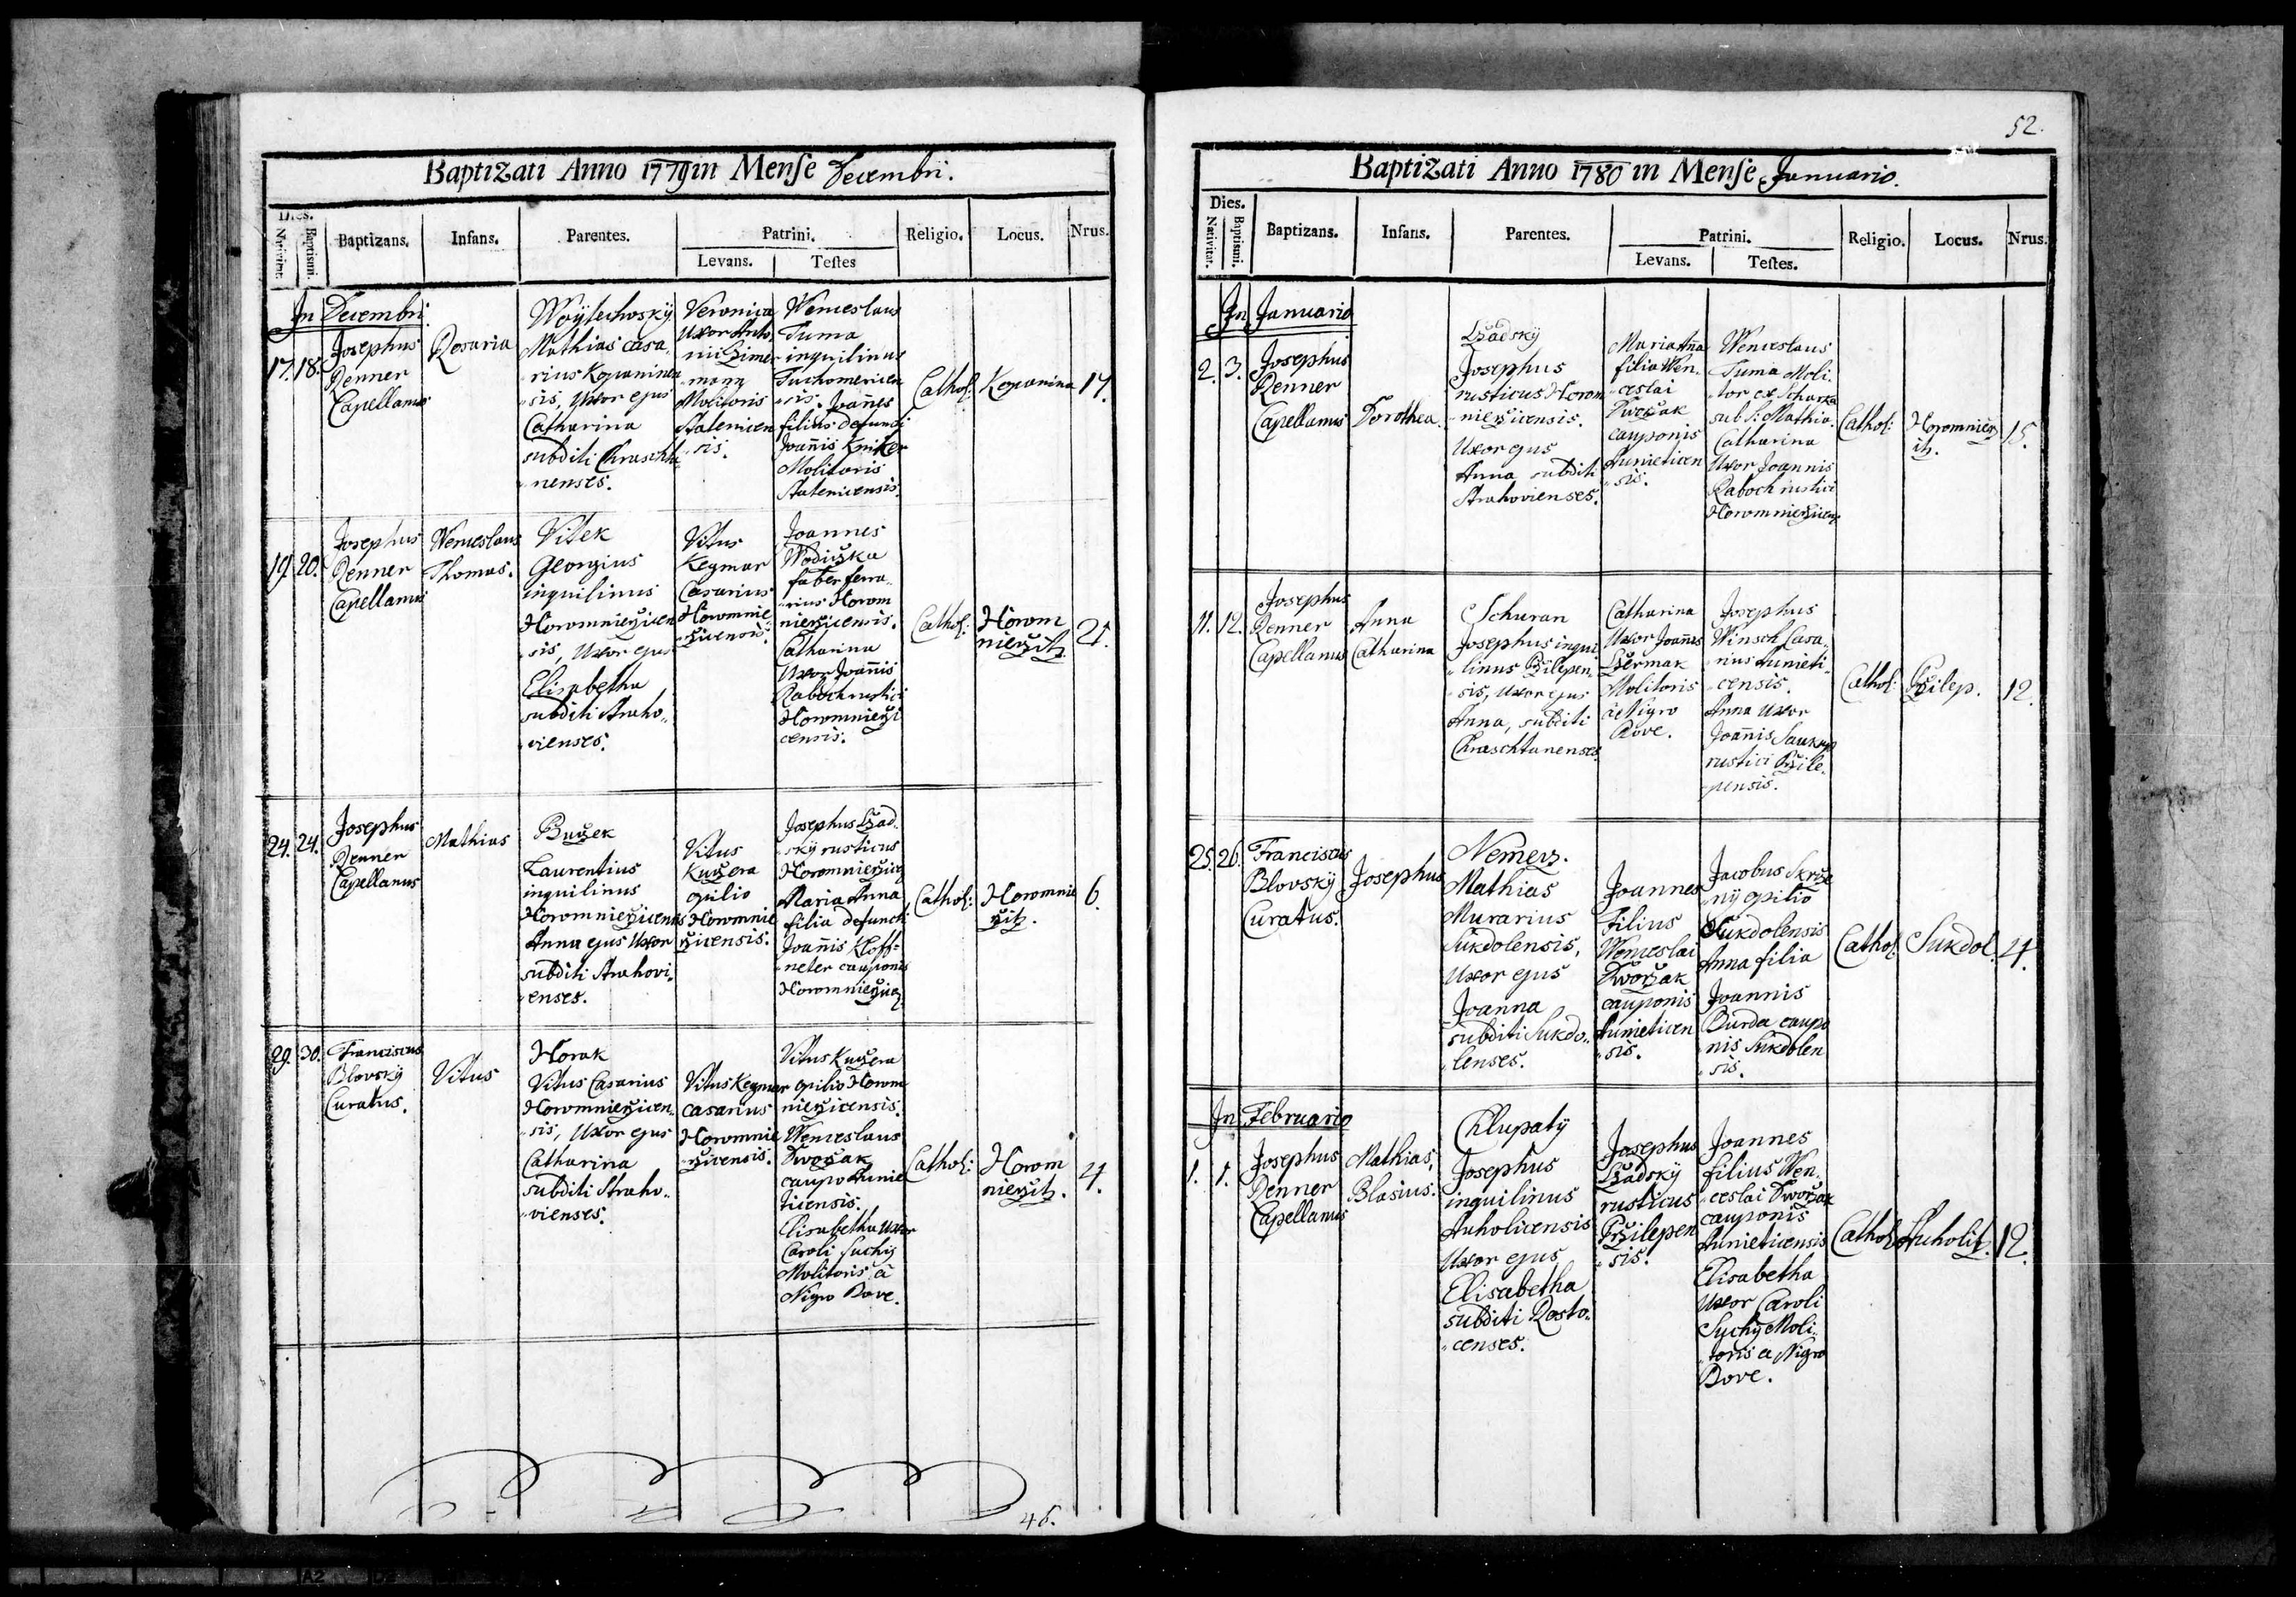 Baptizati Anno 1779 in Mense Decembri.
Dies.
Nativitat.
Baptismi.
Baptizans.
Infans.
Parentes.
Patrini.
Levans.
Testes
Religio.
Locus.
Nrus.
In Decembri.
17. 18.
Josephus
Renner
Capellanus
Rosaria
Woytechovsky
Mathias casa„
„rius Kopaninen
„sis, Uxor ejus
Catharina
subditi Chraschta
„nenses.
Veronica
Uxor Anto„
nii Zimer
„mann
Molitoris
Statenicen
„sis.
Wenceslaus
Tuma
inquilinus
Tuchomericen
„sis. Joañes
filius defuncti
Joañis
Molitoris
Statenicensis.
Cathol:
Kopanina
17.
19. 20.
Josephus
Renner
Capellanus
Wenceslaus
Thomas.
Vitek
Georgius
inquilinus
Horomnierzicen
„sis, Uxor ejus
Elisabetha
subditi Straho„
„vienses.
Vitus
Keymar
Casarius
Horomnie
„rzicensis.
Joannes
Wodiczka
faber ferra„
„rius Horom
nierzicensis.
Catharina
Uxor Joañis
Raboch rustici
Horomnierzi
censis.
Cathol:
Horom
nierzitz
21.
24. 24.
Josephus
Renner
Capellanus
Mathias
Buczek
Laurentius
inquilinus
Horomnierzicensis
Anna ejus Uxor
subditi Strahovi„
„enses.
Vitus
Kuczera
opilio
Horomnie
rzicensis.
Josephus Czad„
„sky rusticus
Horomnierzicz
Maria Anna
filia defuncti
Joañis Kloff„
„neter cauponis
Horomnierzicz
Cathol:
Horomnie
rzitz.
6.
29. 30.
Franciscus
Blovsky
Curatus.
Vitus
Horak
Vitus Casarius
Horomnierzicen„
„sis, Uxor ejus
Catharina
subditi Straho„
„vienses.
Vitus Keymar
casarius
Horomnie
„rzicensis.
Vitus Kuczera
opilio Horom
nierzicensis.
Wenceslaus
Dworzak
caupo Aunie
ticensis.
Elisabetha Uxor
Caroli Suchy
Molitoris à
Nigro Bove.
Cathol:
Horom
nierzitz.
4.
46.
52.
Baptizati Anno 1780 in Mense Januario.
Dies.
Nativitat.
Baptismi.
Baptizans.
Infans.
Parentes.
Patrini.
Levans.
Testes.
Religio.
Locus.
Nrus.
In Januario
2. 3.
Josephus
Renner
Capellanus
Dorothea
Czadsky
Josephus
rusticus Horom
„nierzicensis.
Uxor ejus
Anna subditi
Strahovienses.
Maria Aña
filia Wen„
„ceslai
Dworzak
cauponis
Aunieticen
„sis.
Wenceslaus
Tuma Moli„
„tor ex Scharka
Catharina
Uxor Joannis
Raboch rustici
Horomnierzicens.
Cathol:
Horomnierz
itz.
15.
11. 12.
Josephus
Renner
Capellanus
Anna
Catharina
Schuran
Josephus inqui
„linus Przilepen„
„sis, Uxor ejus
Anna, subditi
Chraschtanenses.
Catharina
Uxor Joañis
Czermak
Molitoris
à Nigro
Bove.
Josephus
Winsch Casa„
„rius Aunieti„
„censis.
Anna Uxor
Joañis Saukup
rustici Przile„
„pensis.
Cathol:
Przilep.
12.
25. 26.
Franciscus
Blovsky
Curatus.
Josephus
Nemecz.
Mathias
Murarius
Sukdolensis,
Uxor ejus
Joanna
subditi Sukdo„
„lenses.
Joannes
Filius
Wenceslai
Dworzak
cauponis
Aunieticen
„sis.
Jacobus Skrze
„ny opilio
Sukdolensis
Anna filia
Joannis
Burda caupo
nis Sukdolen
„sis.
Cathol:
Sukdol.
4.
In Februario
1. 1.
Josephus
Renner
Capellanus
Mathias,
Blasius.
Chlupaty
Josephus
inquilinus
Auholicensis
Uxor ejus
Elisabetha
subditi Rosto„
„censes.
Josephus
Czadsky
rusticus
Przilepen
„sis.
Joannes
filius Wen„
„ceslai Dworzak
cauponis
Aunieticensis
Elisabetha
Uxor Caroli
Suchy Moli„
„toris a Nigro
Bove.
Cathol:
Auholitz.
12.